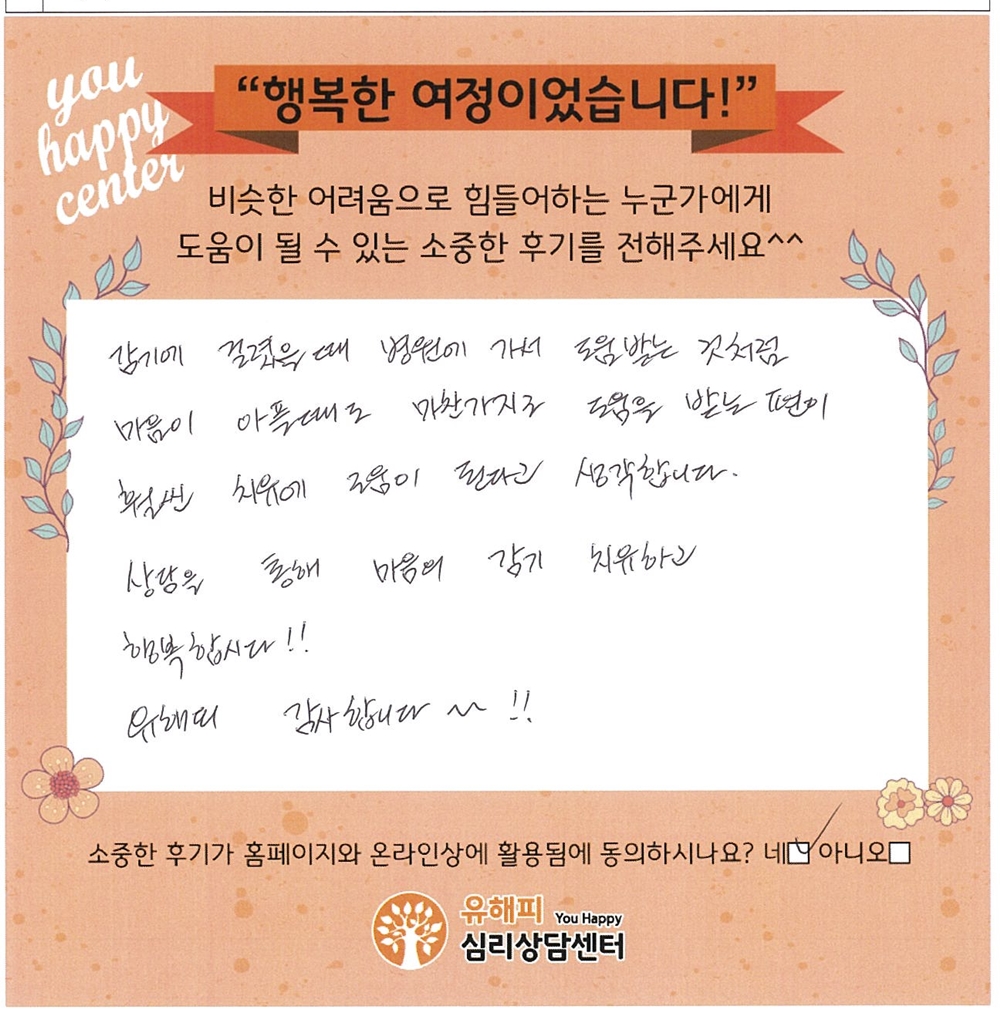 you
happy
center
“행복한 여정이었습니다!”
비슷한 어려움으로 힘들어하는 누군가에게
도움이 될 수 있는 소중한 후기를 전해주세요^^
감기에 걸렸을때 병원에 가서 도움받는 것처럼
마음이 아플때도 마찬가지로 도움을 받는 편이
훨씬 치유에 도움이 된다고 생각합니다.
상담을 통해 마음의 감기 치유하고
행복합시다!!
유해피 감사합니다 ~~ !!
소중한 후기가 홈페이지와 온라인상에 활용됨에 동의하시나요? 네 아니오
유해피 You Happy
심리상담센터